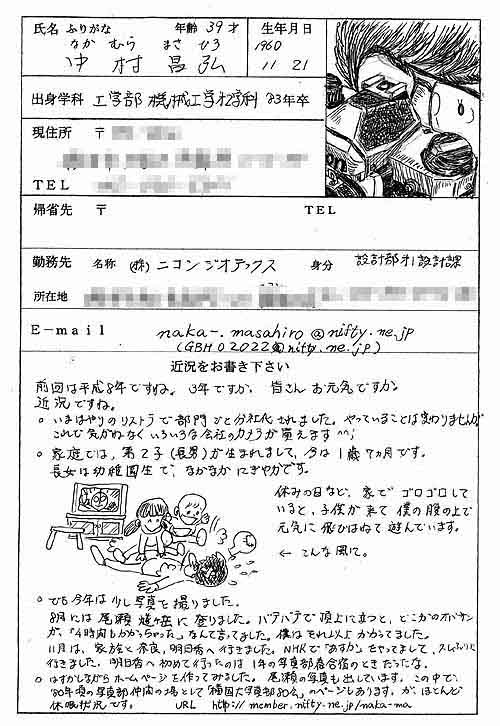 氏名 ふりがな 年齢 39才 生年月日
なか むら まさ ひろ 1960
中村昌弘 11 21
出身学科 工学部 機械工学科 '83年卒
現住所 〒
TEL
帰省先 〒 TEL
勤務先 名称 (株)ニコンジオテックス 身分 設計部第1設計課
所在地
E-mail naka-.masahiro@nifty.ne.jp
(GBH02022@nifty.ne.jp)
近況をお書き下さい
前回は平成8年ですね。3年ですか。皆さんお元気ですか。
近況ですね。
○ いまはやりのリストラで部門ごと分社化されました。やっていることは変わりませんが
これで気がねなくいろいろな会社のカメラが買えます^^;
○ 家庭では、第2子(長男)が生まれまして、今は1歳7ヵ月です。
長女は幼稚園生で、なかなかにぎやかです。
休みの日など、家でゴロゴロして
いると、子供が来て僕の腹の上で
元気に飛びはねて遊んでいます。
← こんな風に。
○ でも今年は少し写真を撮りました。
8月には尾瀬 燧ヶ岳に登りました。バテバテで頂上に立つと、どこかのオバサン
が、「4時間もかかっちゃった」なんて言ってました。僕はそれ以上かかってました。
11月は、家族と奈良、明日香へ行きました。NHKで"あすか"をやってまして、
行きました。明日香へ初めて行ったのは1年の写真部春合宿のときだったな。
○ はずかしながらホームページを作ってみました。尾瀬の写真も出しています。この中で、
'80年頃の写真部仲間の場として"横国大写真部80's"のページもあります。が、ほとんど
休眠状況です。 URL http://member.nifty.ne.jp/naka-ma